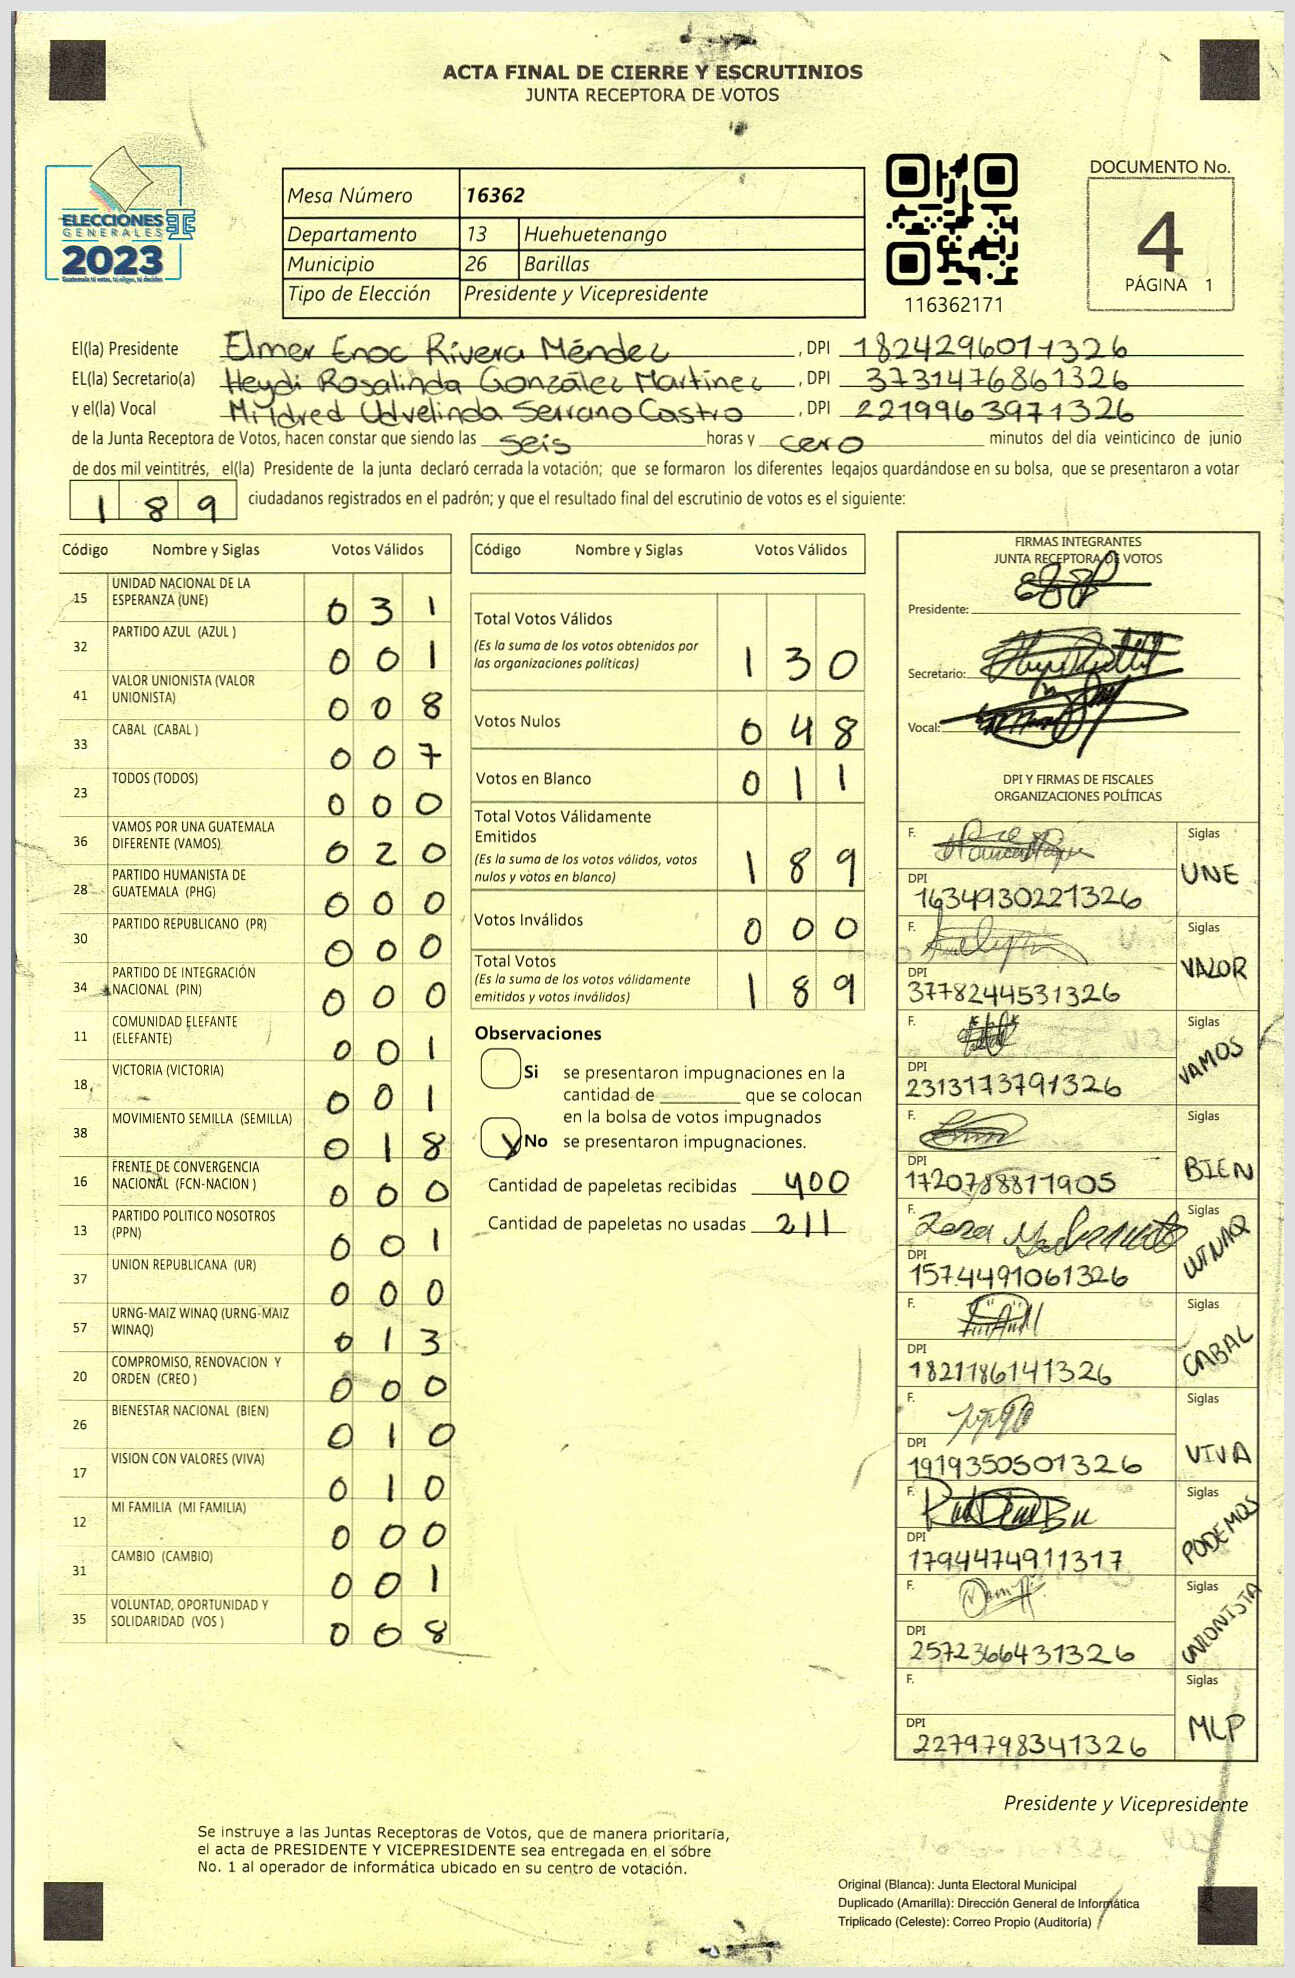 ACTA FINAL DE CIERRE Y ESCRUTINIOS
JUNTA RECEPTORA DE VOTOS
ELECCIONES
GENERALES
2023
Mesa Número 16362
Departamento 13 Huehuetenango
Municipio 26 Barillas
Tipo de Elección Presidente y Vicepresidente
116362171
DOCUMENTO No.
4
PÁGINA 1
El(la) Presidente Elmer Enoc Rivera Méndez, DPI 1824296011326
EL(la) Secretario(a) Heydi Rosalinda González Martínez, DPI 3731476861326
y el(la) Vocal Mildred Udvelinda Serrano Castro, DPI 2219963971326
de la Junta Receptora de Votos, hacen constar que siendo las seis horas y cero minutos del día veinticinco de junio
de dos mil veintitrés, el(la) Presidente de la junta declaró cerrada la votación; que se formaron los diferentes legajos quardándose en su bolsa, que se presentaron a votar
189 ciudadanos registrados en el padrón; y que el resultado final del escrutinio de votos es el siguiente:
Código Nombre y Siglas Votos Válidos
15 UNIDAD NACIONAL DE LA ESPERANZA (UNE) 031
32 PARTIDO AZUL (AZUL ) 001
41 VALOR UNIONISTA (VALOR UNIONISTA) 008
33 CABAL (CABAL ) 007
23 TODOS (TODOS) 000
36 VAMOS POR UNA GUATEMALA DIFERENTE (VAMOS) 020
28 PARTIDO HUMANISTA DE GUATEMALA (PHG) 000
30 PARTIDO REPUBLICANO (PR) 000
34 PARTIDO DE INTEGRACIÓN NACIONAL (PIN) 000
11 COMUNIDAD ELEFANTE (ELEFANTE) 001
18 VICTORIA (VICTORIA) 001
38 MOVIMIENTO SEMILLA (SEMILLA) 018
16 FRENTE DE CONVERGENCIA NACIONAL (FCN-NACION ) 000
13 PARTIDO POLITICO NOSOTROS (PPN) 001
37 UNION REPUBLICANA (UR) 000
57 URNG-MAIZ WINAQ (URNG-MAIZ WINAQ) 013
20 COMPROMISO, RENOVACION Y ORDEN (CREO ) 000
26 BIENESTAR NACIONAL (BIEN) 010
17 VISION CON VALORES (VIVA) 010
12 MI FAMILIA (MI FAMILIA) 000
31 CAMBIO (CAMBIO) 001
35 VOLUNTAD, OPORTUNIDAD Y SOLIDARIDAD (VOS ) 008
Código Nombre y Siglas Votos Válidos
Total Votos Válidos
(Es la suma de los votos obtenidos por
las organizaciones políticas) 130
Votos Nulos 048
Votos en Blanco 011
Total Votos Válidamente
Emitidos
(Es la suma de los votos válidos, votos
nulos y votos en blanco) 189
Votos Inválidos 000
Total Votos
(Es la suma de los votos válidamente
emitidos y votos inválidos) 189
Observaciones
Si se presentaron impugnaciones en la
cantidad de ________ que se colocan
en la bolsa de votos impugnados
No se presentaron impugnaciones.
Cantidad de papeletas recibidas 400
Cantidad de papeletas no usadas 211
FIRMAS INTEGRANTES
JUNTA RECEPTORA DE VOTOS
Presidente:
Secretario:
Vocal:
DPI Y FIRMAS DE FISCALES
ORGANIZACIONES POLÍTICAS
F. Siglas
DPI 1634930221326 UNE
F. Siglas
DPI 3778244531326 VALOR
F. Siglas
DPI 2313173791326 VAMOS
F. Siglas
DPI 1720788811905 BIEN
F. Siglas
DPI 1574491061326 WINAQ
F. Siglas
DPI 1821186141326 CABAL
F. Siglas
DPI 1919350501326 VIVA
F. Siglas
DPI 1794474911317 PODEMOS
F. Siglas
DPI 2572366431326 UNIONISTA
F. Siglas
DPI 2279798341326 MLP
Presidente y Vicepresidente
Se instruye a las Juntas Receptoras de Votos, que de manera prioritaria,
el acta de PRESIDENTE Y VICEPRESIDENTE sea entregada en el sobre
No. 1 al operador de informática ubicado en su centro de votación.
Original (Blanca): Junta Electoral Municipal
Duplicado (Amarilla): Dirección General de Informática
Triplicado (Celeste): Correo Propio (Auditoría)